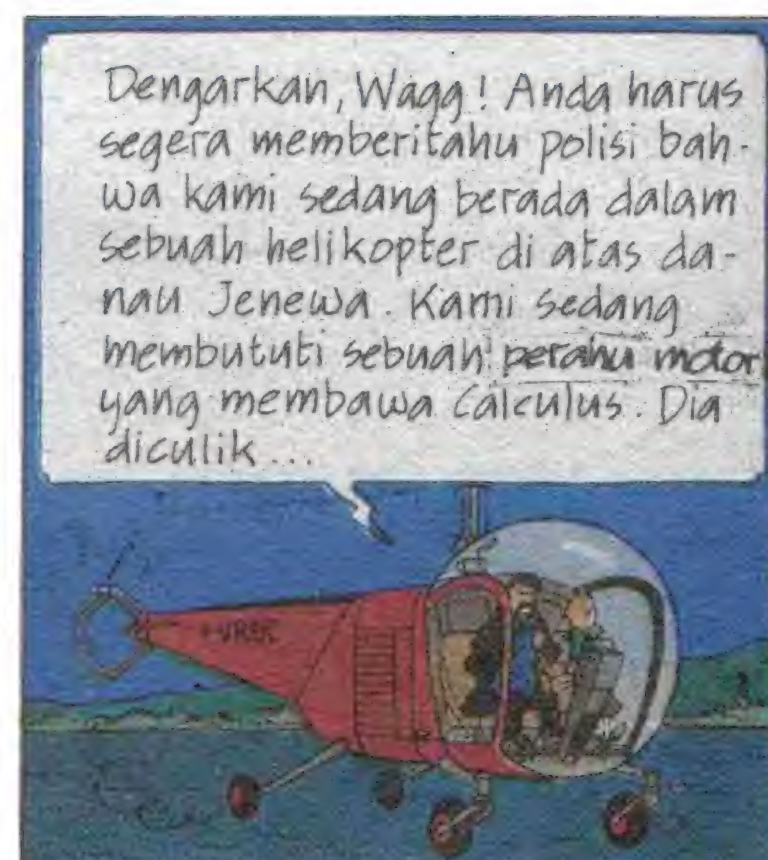 Dengarkan, Wagg! Anda harus
segera memberitahu polisi bah-
wa kami sedang berada dalam
sebuah helikopter di atas da-
nau Jenewa. Kami sedang
membututi sebuah perahu motor
yang membawa Calculus. Dia
diculik...